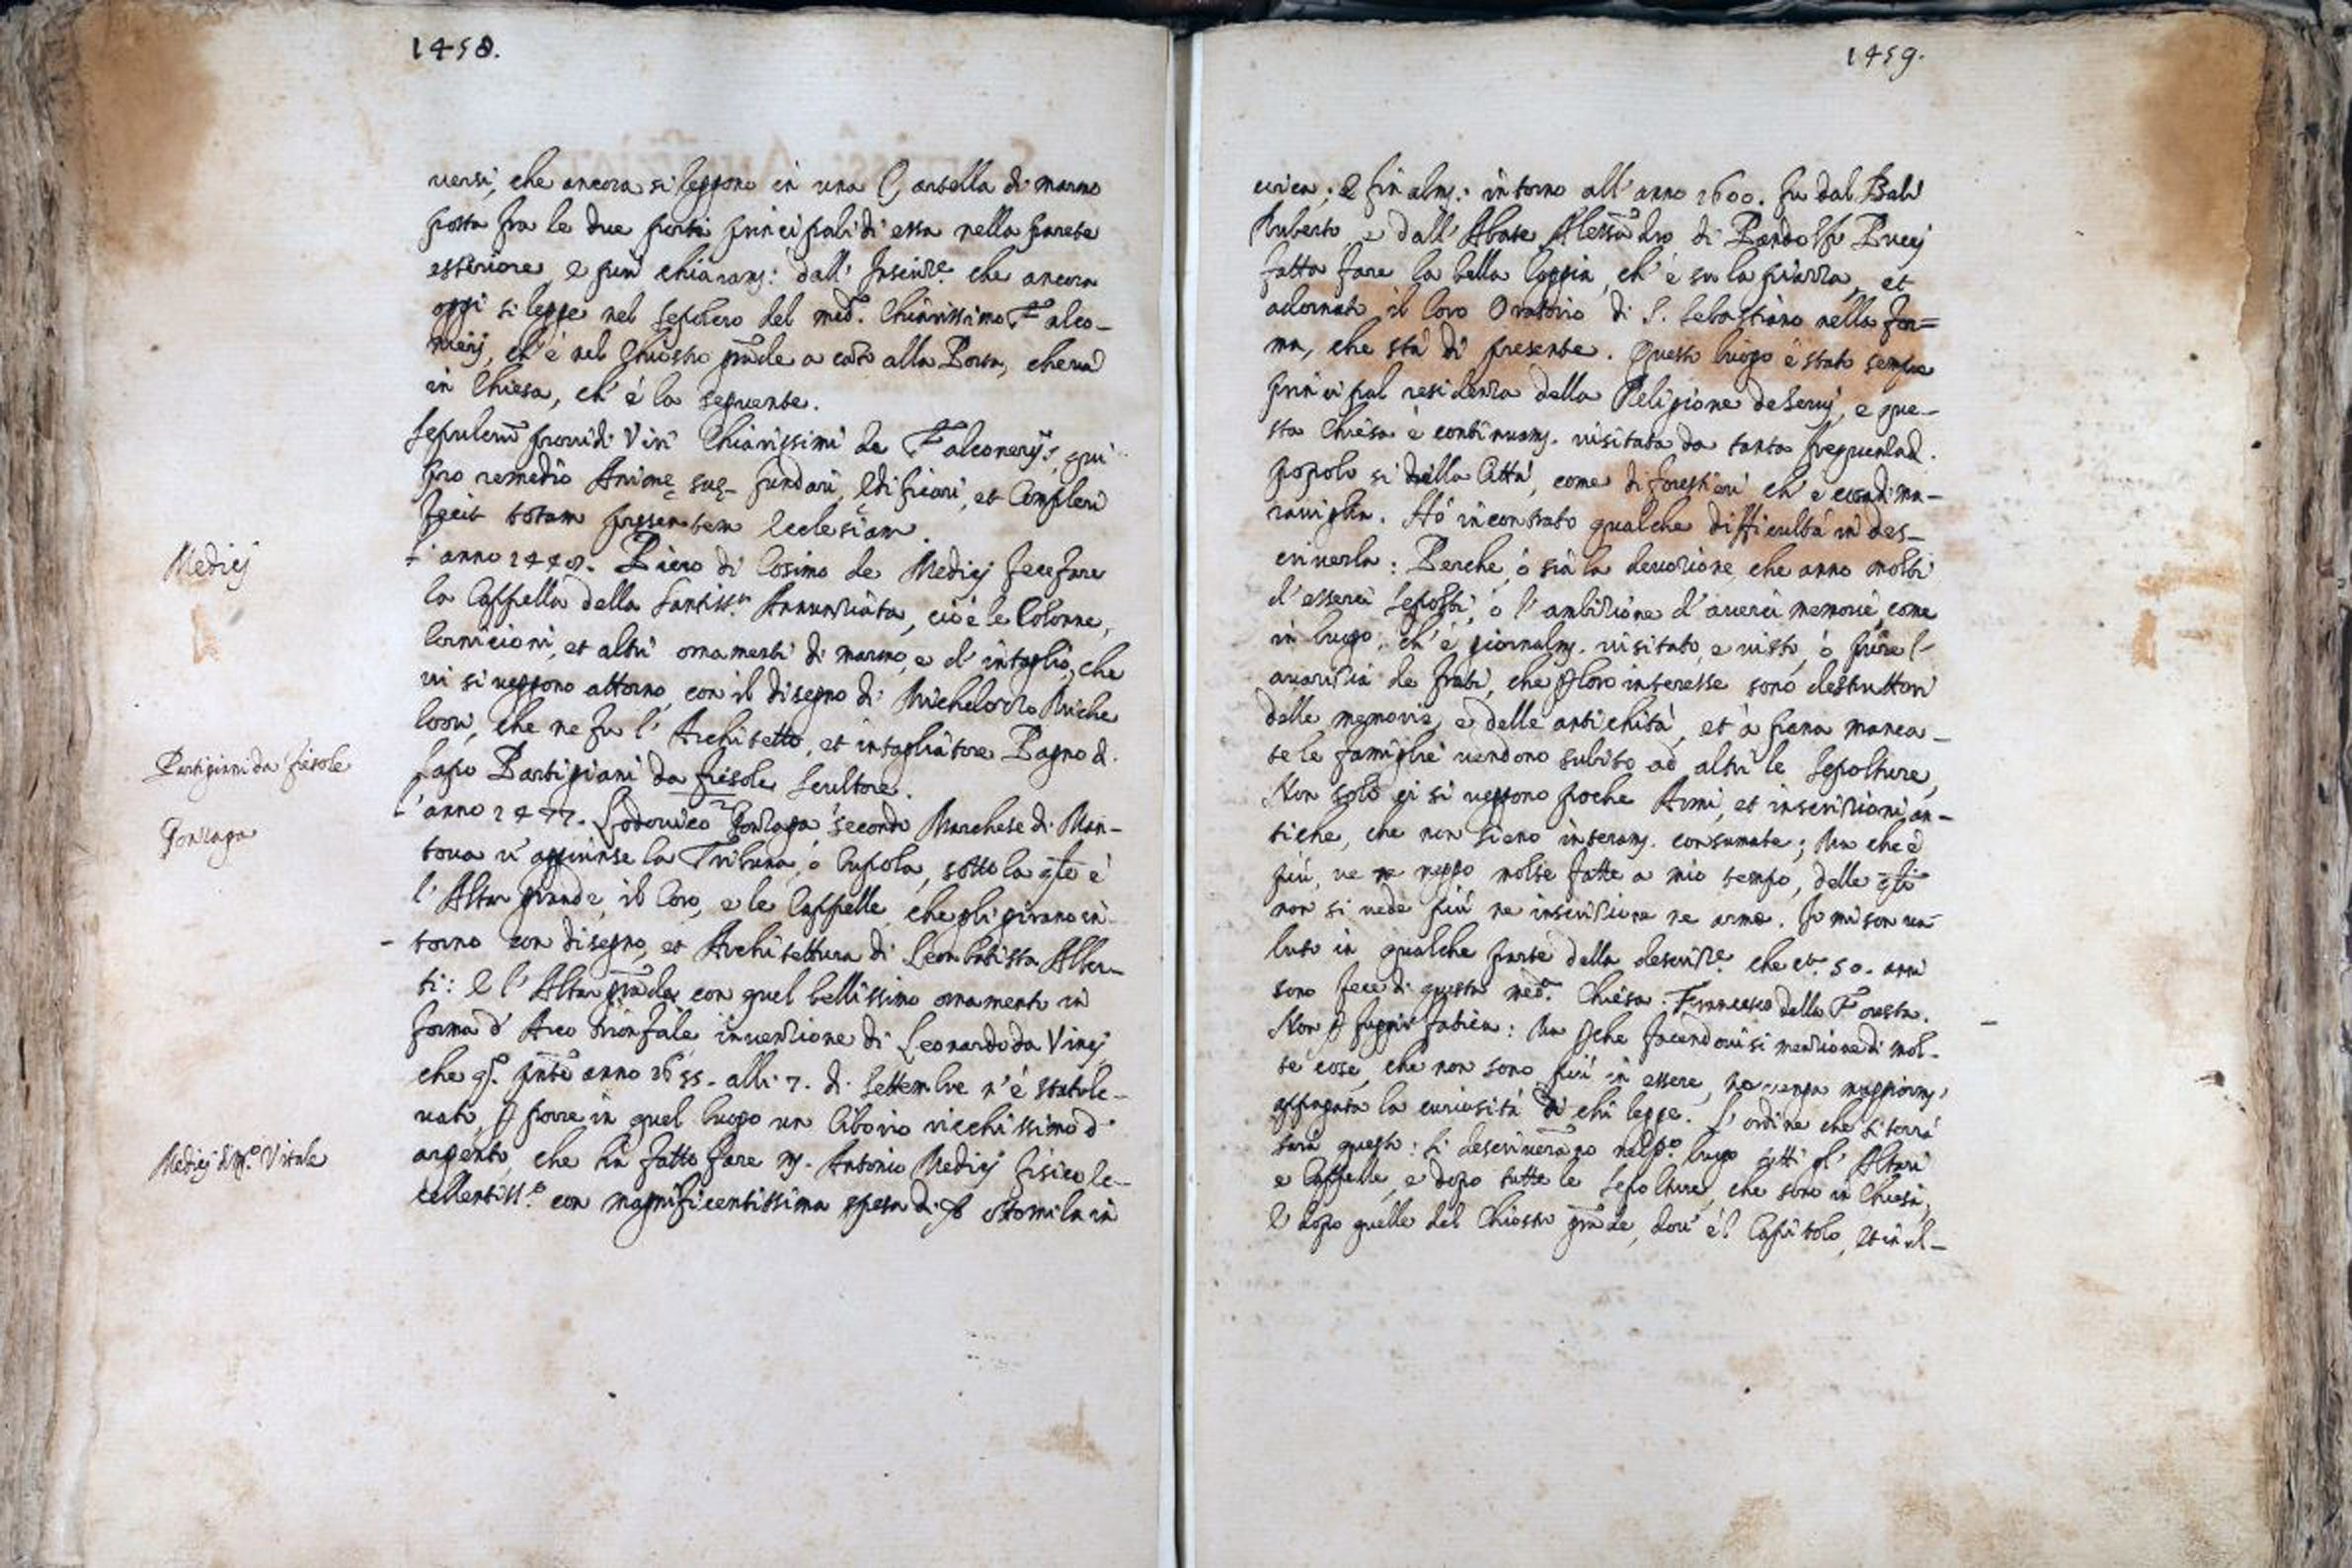 1458.
versi, che ancora si leggono in una Cartella di marmo
posta fra le due porti principali di essa nella parete
esteriore, e più chiaram: dall' Inscriz.e che ancora
oggi si legge nel sepolcro del med.o Chiarissimo Falco-
nierj, ch' è nel Chiostro grãde a cãto alla Porta, che va
in Chiesa, ch' è la seguente.
Sepulcrũ providi Viri Chiarissimi de Falconerijs, qui
pro remedio Anime sue fundari, edificari, et Compleri
fecit totam presentem Ecclesiam.
Medicj
l' anno 1448. Piero di Cosimo de Medicj fece fare
la Cappella della Santiss.a Annunziata, cioè le Colonne,
Cornicioni, et altri ornamenti di marmo, e d' intaglio, che
vi si veggono attorno, con il disegno di Michelozzo Miche
lozzi, che ne fu l' Architetto, et intagliatore Pagno d.
Partigiani da fiesole
Lapo Partigiani da fiesole Scultore.
Gonzaga
l' anno 1477. Lodovico Gonzaga secondo Marchese di Man-
tova vi aggiunse la Tribuna, o Cupola, sotto la qle è
l' Altar grande, il Coro, e le Cappelle, che gli girano in-
torno con disegno, et Architettura di Leon Batista Alber-
ti: E l' Altar grãde con quel bellissimo ornamento in
forma d' Arco trionfale invenzione di Leonardo da Vincj
che qt.o pñte anno 1655. alli 7. di Settembre n' è stato le-
vato, p porre in quel luogo un Ciborio ricchissimo d'
Medicj d. M.o Vitale
argento, che hà fatto fare m. Antonio Medicj fisico ec-
cellentiss.o con magnificentissima spesa di otto mila in
1459.
circa; E finalm.: intorno all' anno 1600. fu dal Balì
Ruberto, e dall' Abate Alessãdro di Pandolfo Puccj
fatta fare la bella loggia, ch' è su la piazza, et
adornato il loro Oratorio di S. Sebastiano nella for=
ma, che stà di presente. Questo luogo è stato sempre
principal residenza della Religione de Servj, e que-
sta Chiesa è continuam. visitata da tanta frequenza d.
popolo si della Città, come di forestieri ch' è cosa di ma-
raviglia. Hò incontrato qualche difficultà in des-
criverla: Perche, ò sia la devozione, che anno molti
d' esserci sepolti, o l' ambizione d' averci memorie, come
in luogo, ch' è giornalm. visitato, e visto, ò pure l'
avarizia de frati, che p loro interesse sono destruttori
delle memorie, e delle antichità, et à pena manca-
te le famiglie vendono subito ad altri le Sepolture,
Non solo ci si veggono poche Armi, et inscrizioni an-
tiche, che non sieno interam. consumate; Ma che è
più, ve ne veggo molte fatte a mio tempo, delle qli
non si vede più ne inscrizione ne arme. Io mi son va-
luto in qualche parte della descriz.e che 50. anni
sono fece di questa med.a Chiesa: Francesco della Foresta.
Non p fuggir fatica: Ma pche facendovisi menzione di mol-
te cose, che non sono più in essere, ne venga maggiorm.
appagata la curiosità di chi legge. L' ordine che si terrà
sarà questo: Si descriverãno nel p.o luogo tutti gl' Altari
e Cappelle, e dopo tutte le Sepolture, che sono in Chiesa,
E dopo quelle del Chiostro grãde, dov' è 'l Capitolo, et in al-